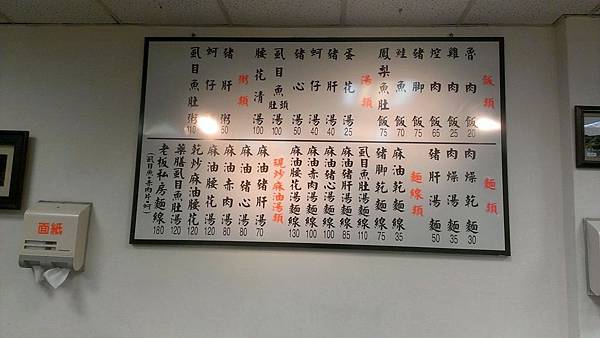 飯類
魯肉飯 20
雞肉飯 25
焢肉飯 65
豬腳飯 75
鮭魚飯 70
鳳梨魚肚飯 75
湯類
蛋花湯 25
豬肝湯 40
蚵仔湯 40
豬心湯 50
虱目魚頭肚湯 100
腰花清湯 100
粥類
豬肝粥 50
蚵仔粥
虱目魚肚粥 110
麵類
肉燥乾麵 30
肉燥湯麵 35
豬肝湯麵 50
麵線類
麻油乾麵線 35
豬腳乾麵線 75
虱目魚肚麵線 110
麻油豬肝湯麵線 85
麻油豬心湯麵線 100
麻油赤肉湯麵線 100
麻油腰花湯麵線 130
現炒麻油湯類
麻油豬肝湯 70
麻油豬心湯 80
麻油赤肉湯 80
麻油腰花湯 120
乾炒麻油腰花 120
藥膳虱目魚肚湯 120
老板私房麵線 180
(虱目魚+赤肉片+蚵)
面紙